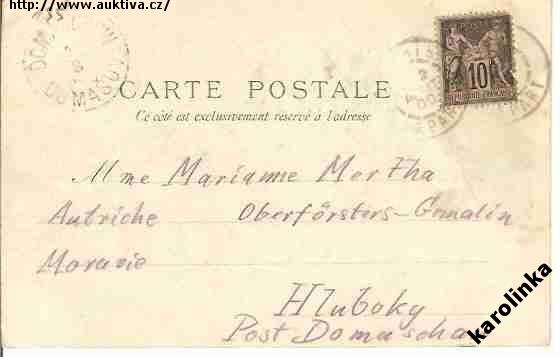 http://www.auktiva.cz/
10
CARTE POSTALE
Ce côté est exclusivement reservé à l'adresse
Mme Marianne Mertha
Autriche Oberförsters-Gemalin
Moravie
Hluboky
Post Domascha
karolinka